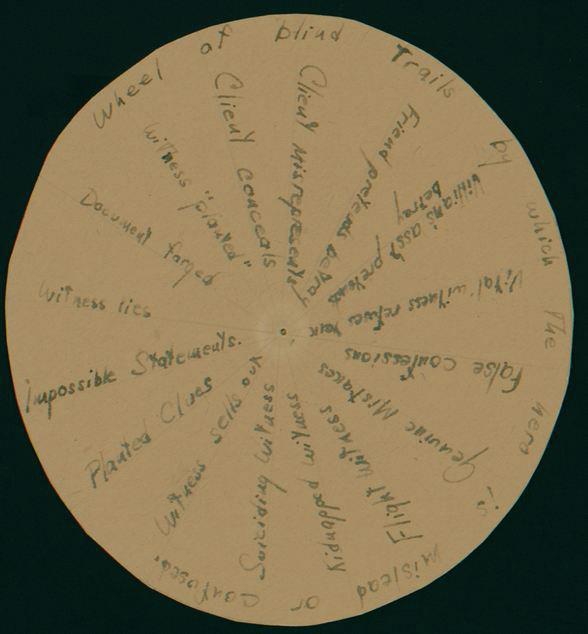 Wheel of blind Trails by which the hero is mislead or confused.
Client Misrepresents
Friend pretends betray
Villians ass't pretends
betray
Vital witness refuses talk
False confessions
Genuine Mistakes
Flight witness
Kidnapped witness
Suiciding witness
Witness sells out
Planted Clues
Impossible Statements.
Witness lies
Document forged
Witness "planted"
Client conceals